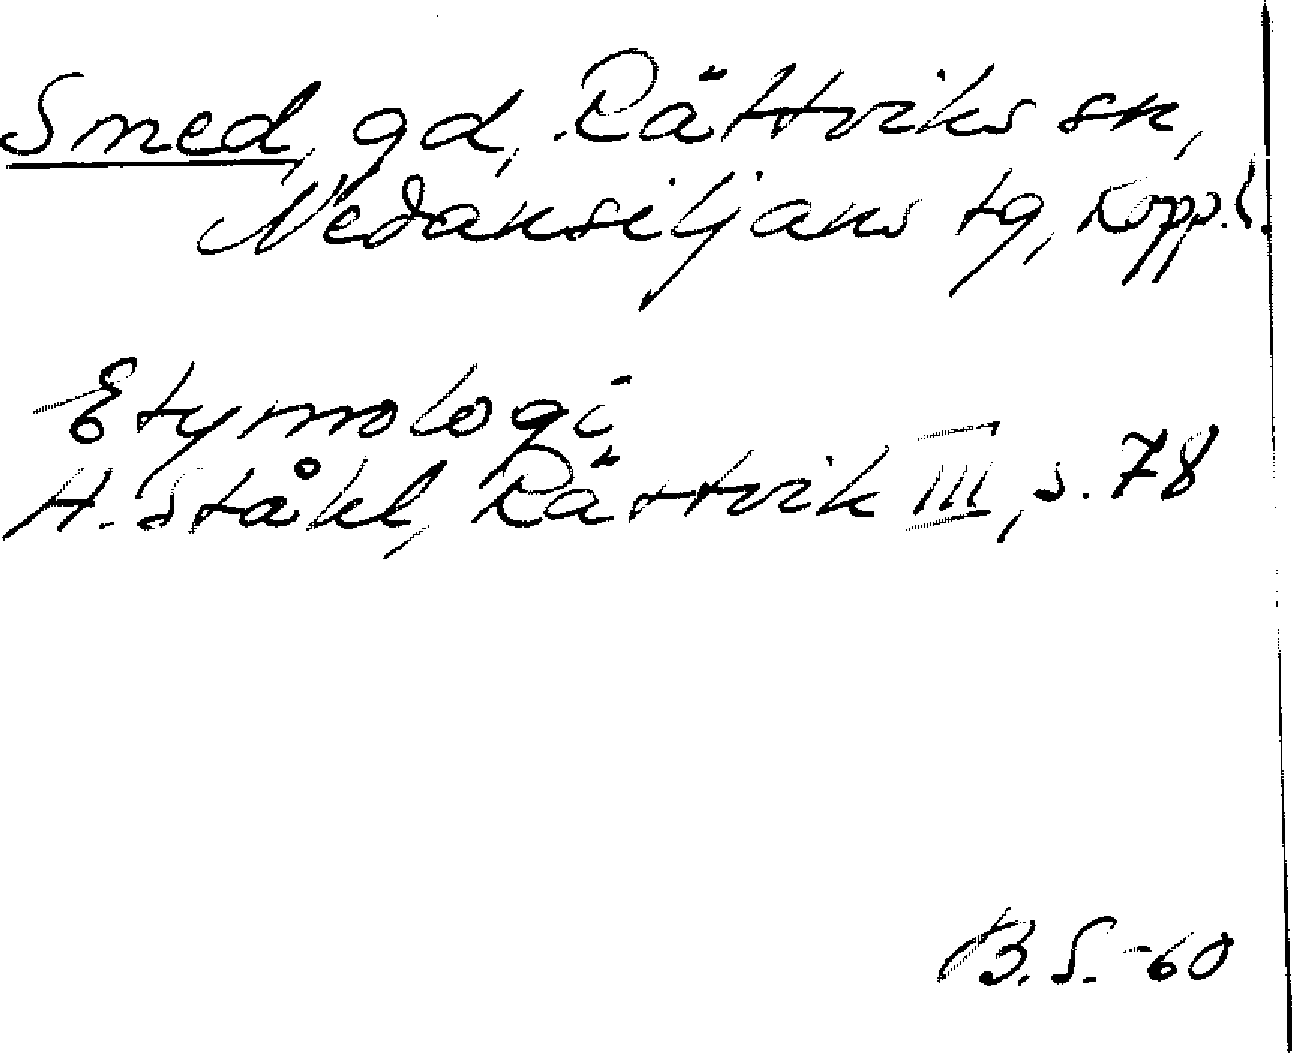 Smed, gd, Rättviks sn,
Nedansiljans tg, Kopp.l.
Etymologi
H. Ståhl, Rättvik III, s. 78
B.S. -60